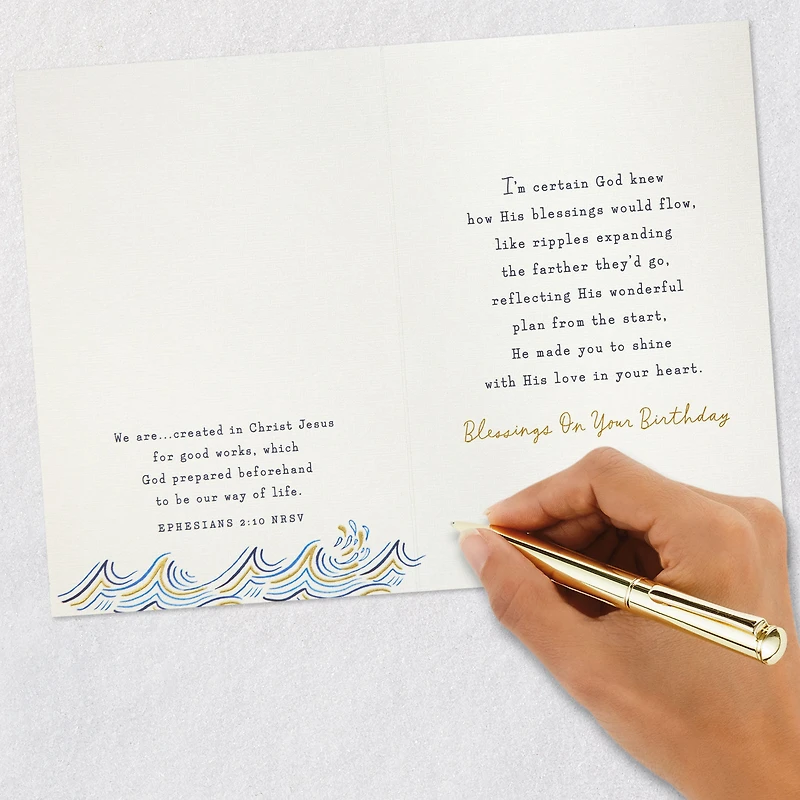 We are...created in Christ Jesus
for good works, which
God prepared beforehand
to be our way of life.
EPHESIANS 2:10 NRSV
I'm certain God knew
how His blessings would flow,
like ripples expanding
the farther they'd go,
reflecting His wonderful
plan from the start,
He made you to shine
with His love in your heart.
Blessings On Your Birthday